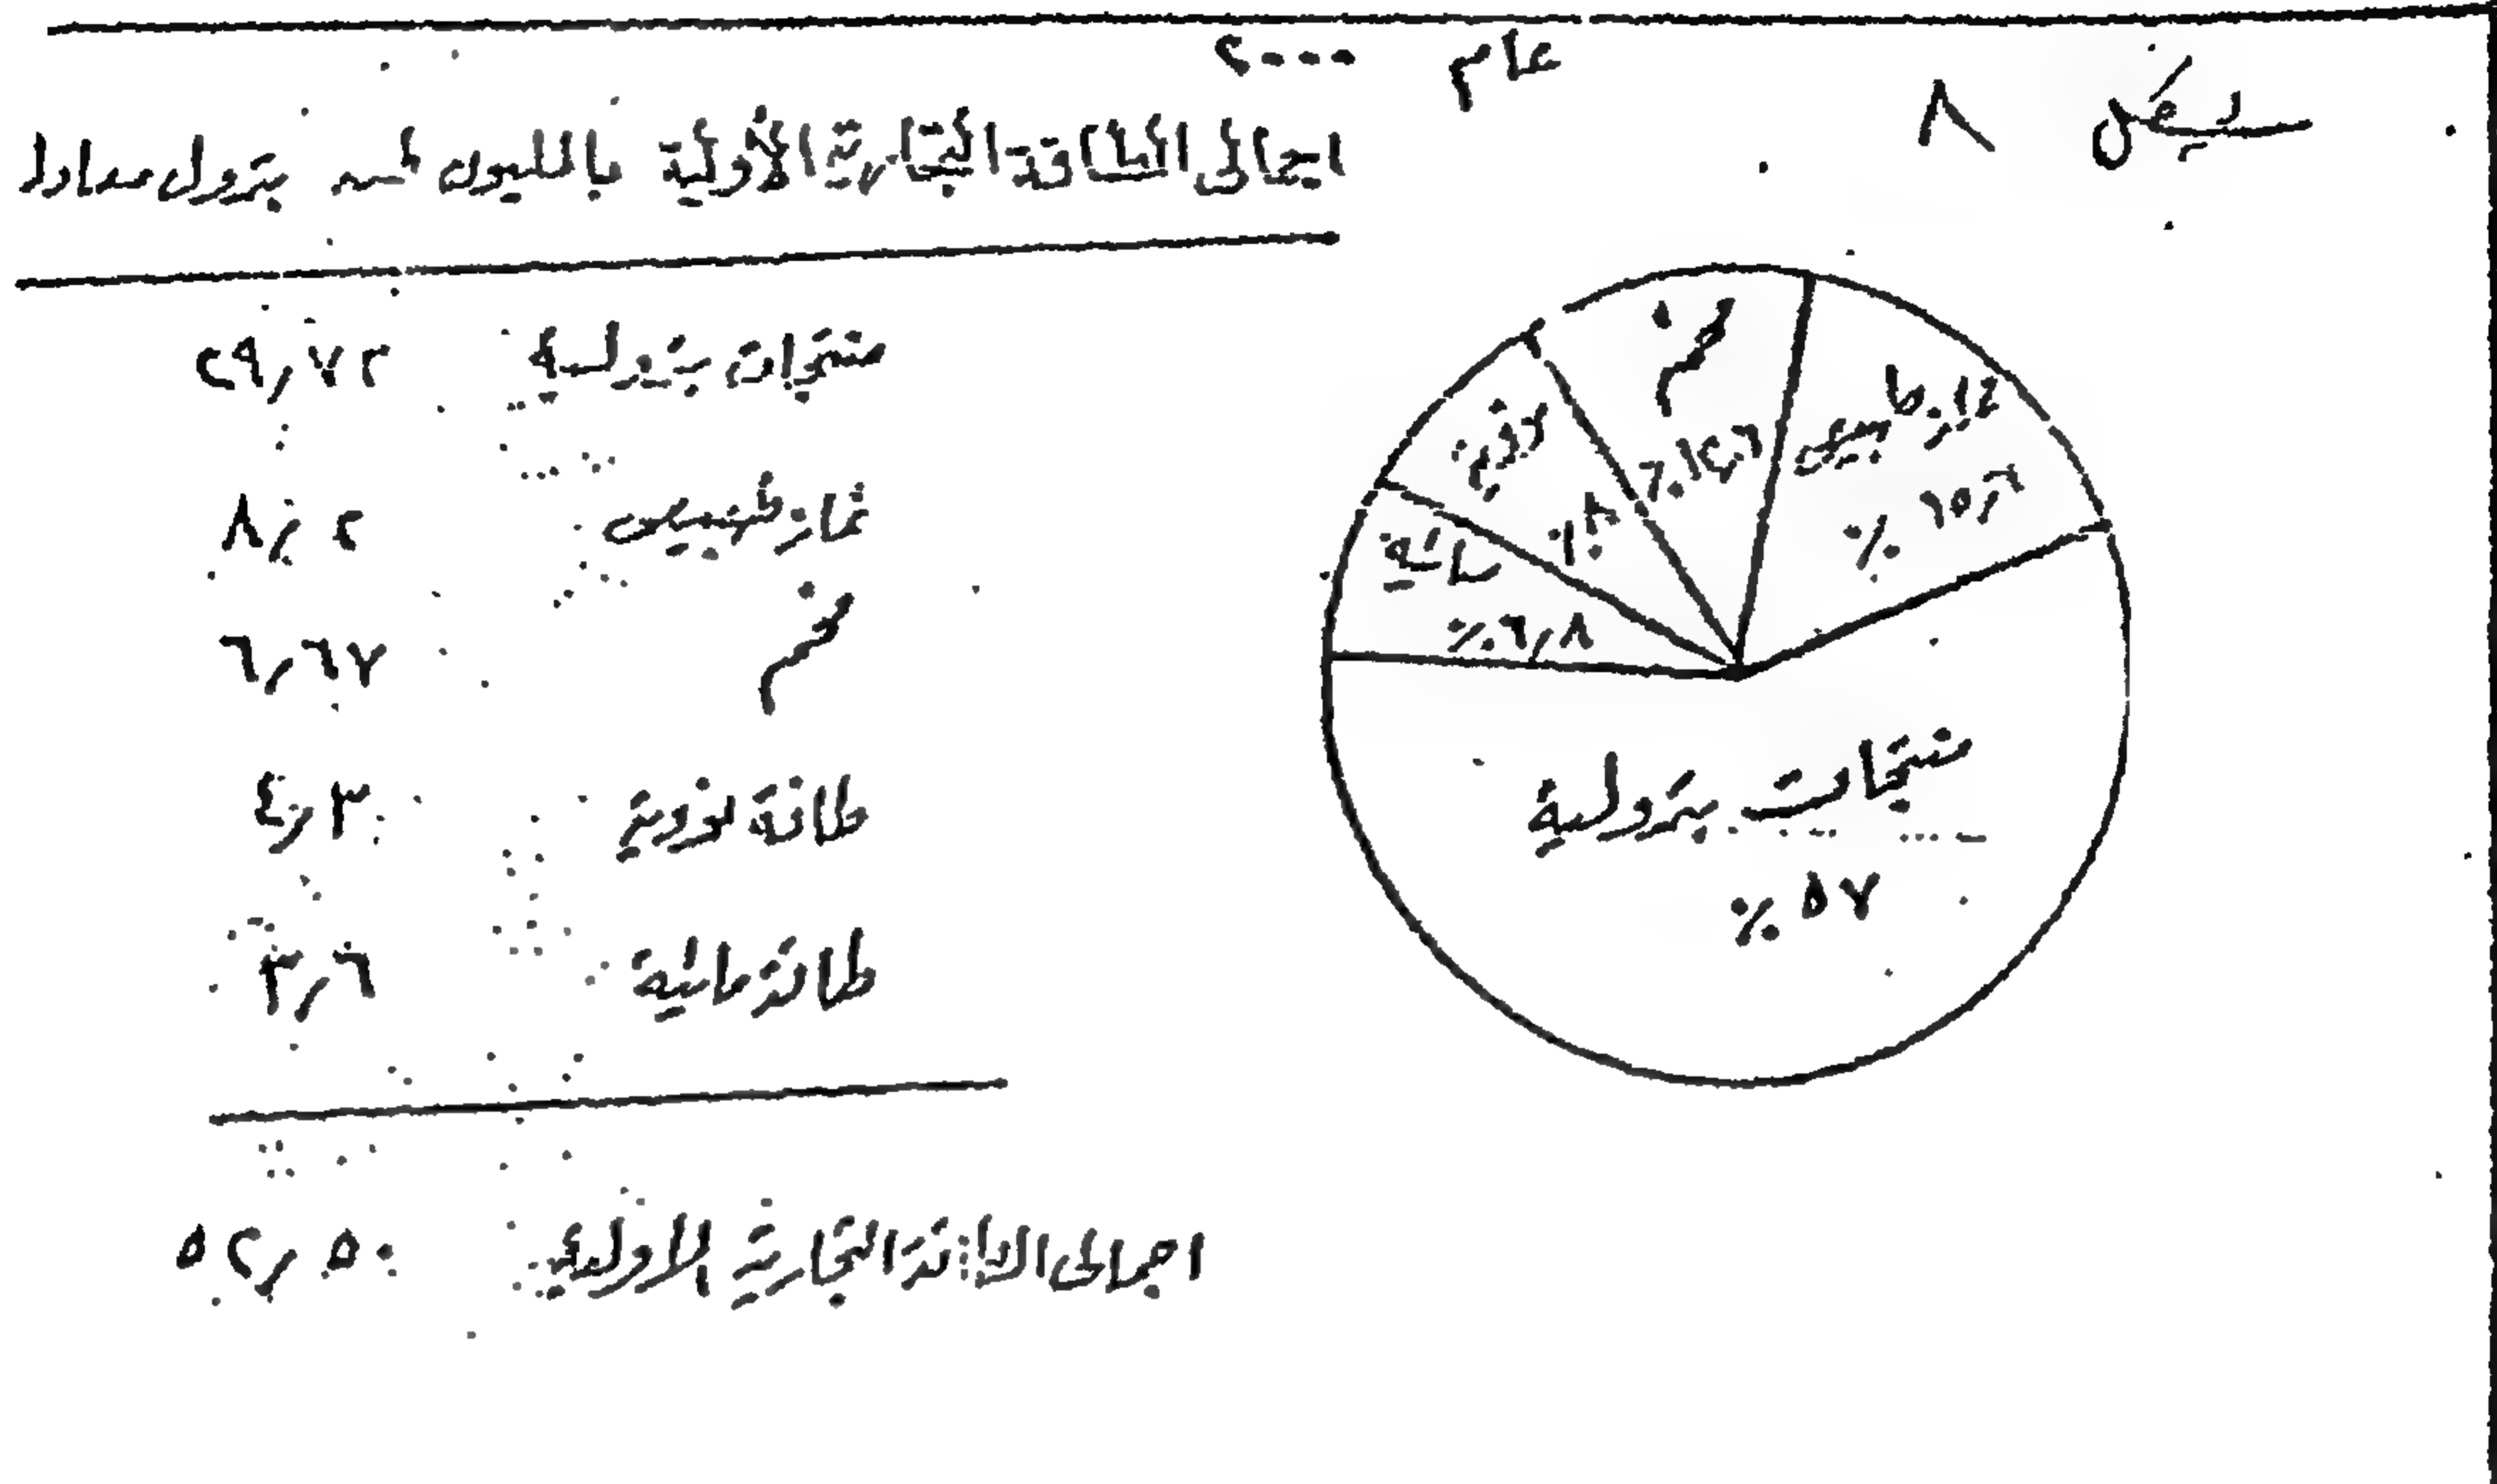 عام ٢٠٠٠
شكل ٨
اجمالى الطاقة التجارية الأولية بالمليون طن بترول معادل
منتجات بترولية ٢٩,٧٣
غاز طبيعى ٨,٢
فحم ٦,٦٧
طاقة نووية ٤,٣
طاقة مائية ٣,٦
اجمالى الطاقة التجارية الاولية ٥٢,٥٠
غاز طبيعى
٪
فحم
نووية
٪٨
مائية
٪٦,٨
منتجات بترولية
٪٥٧